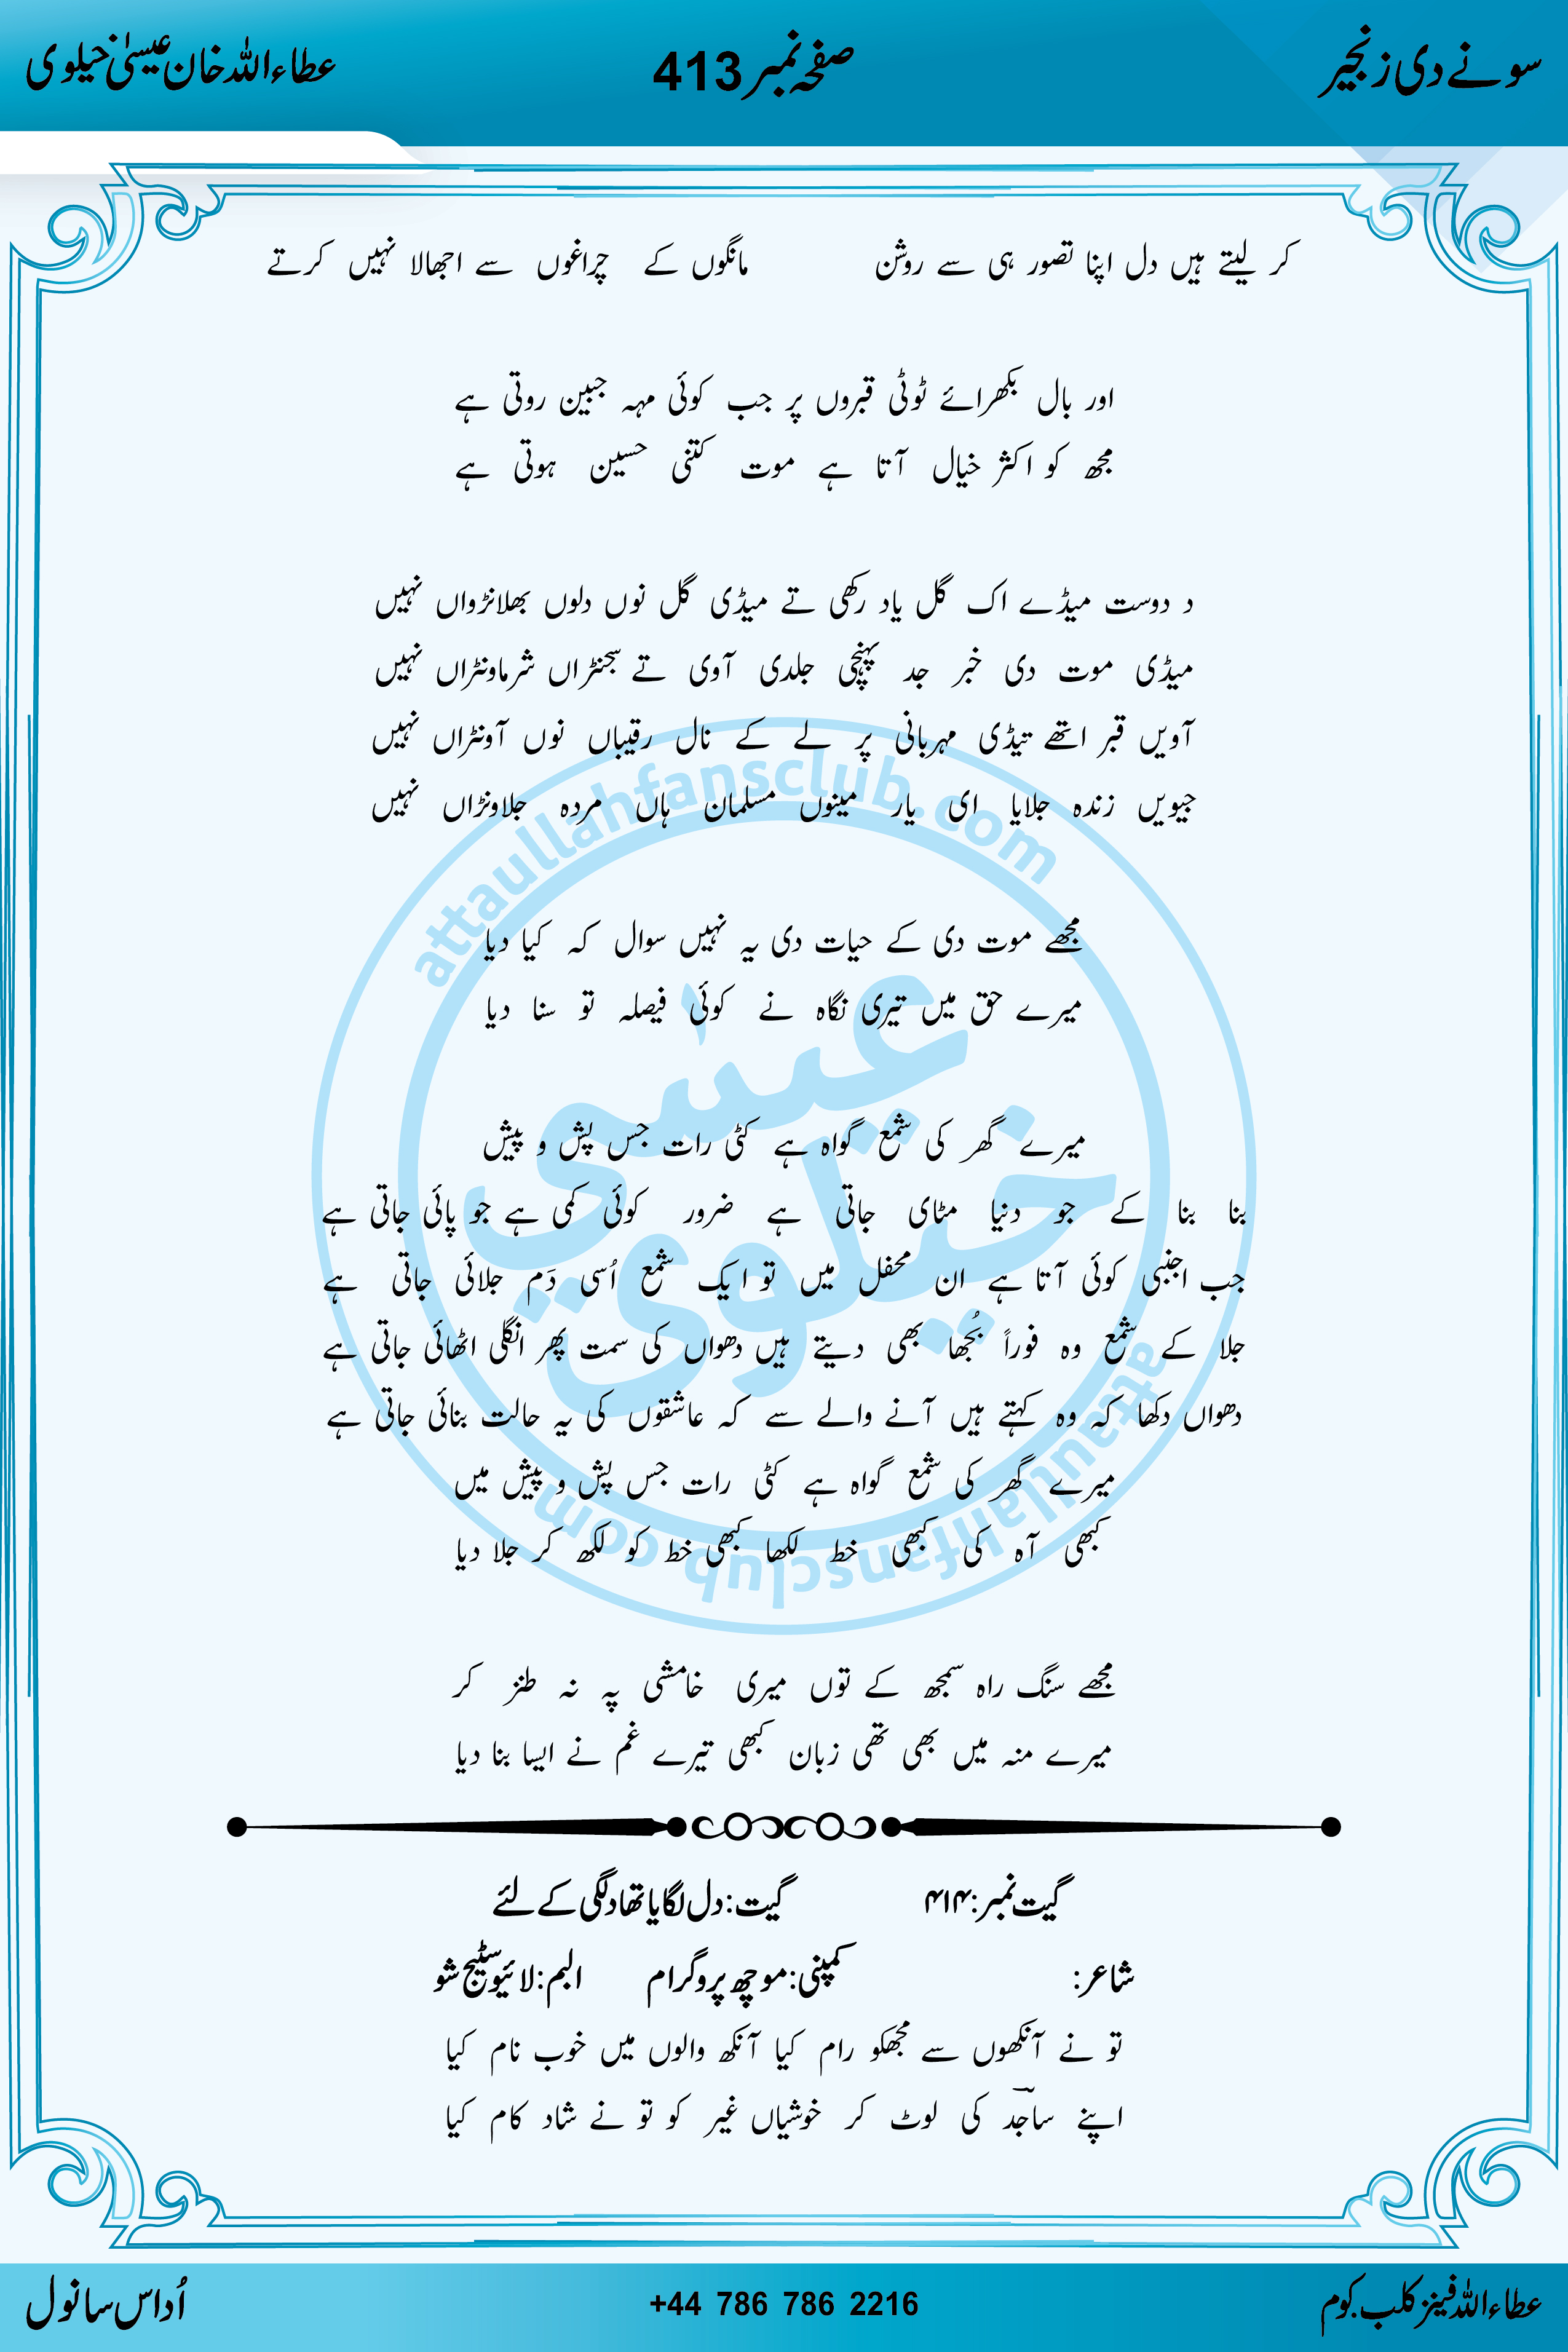 سونے دی زنجیر
صفحہ نمبر 413
عطاءاللہ خان عیسیٰ خیلوی
کر لیتے ہیں دل اپنا تصور ہی سے روشن مانگوں کے چراغوں سے اجھالا نہیں کرتے
اور بال بکھرائے ٹوٹی قبروں پر جب کوئی مہہ جبین روتی ہے
مجھ کو اکثر خیال آتا ہے موت کتنی حسین ہوتی ہے
د دوست میڈے اک گل یاد رکھی تے میڈی گل نوں دلوں بھلانڑواں نہیں
میڈی موت دی خبر جد پہنچی جلدی آوی تے سجنڑاں شرماونڑاں نہیں
آویں قبر اتھے تیڈی مہربانی پر لے کے نال رقیباں نوں آونڑاں نہیں
جیویں زندہ جلایا ای یار مینوں مسلمان ہاں مردہ جلاونڑاں نہیں
مجھے موت دی کے حیات دی یہ نہیں سوال کہ کیا دیا
میرے حق میں تیری نگاہ نے کوئی فیصلہ تو سنا دیا
میرے گھر کی شمع گواہ ہے کٹی رات جس پش و پیش
بنا بنا کے جو دنیا مٹای جاتی ہے ضرور کوئی کمی ہے جو پائی جاتی ہے
جب اجنبی کوئی آتا ہے ان محفل میں تو ایک شمع اُسی دَم جلائی جاتی ہے
جلا کے شمع وہ فوراً بُجھا بھی دیتے ہیں دھواں کی سمت پھر انگلی اٹھائی جاتی ہے
دھواں دکھا کہ وہ کہتے ہیں آنے والے سے کہ عاشقوں کی یہ حالت بنائی جاتی ہے
میرے گھر کی شمع گواہ ہے کٹی رات جس پش و پیش میں
کبھی آہ کی کبھی خط لکھا کبھی خط کو لکھ کر جلا دیا
مجھے سنگ راہ سمجھ کے توں میری خامشی پہ نہ طنز کر
میرے منہ میں بھی تھی زبان کبھی تیرے غم نے ایسا بنا دیا
گیت نمبر:۴۱۴ گیت: دل لگایا تھا دلگی کے لئے
شاعر: کمپنی: موچھ پروگرام البم: لائیو سٹیج شو
تو نے آنکھوں سے مجھکو رام کیا آنکھ والوں میں خوب نام کیا
اپنے ساجدؔ کی لوٹ کر خوشیاں غیر کو تو نے شاد کام کیا
attaullahfansclub.com
عیسٰی
خیلوی
attaullahfansclub.com
عطاءاللہ فینز کلب.کوم
+44 786 786 2216
اُداس سانول